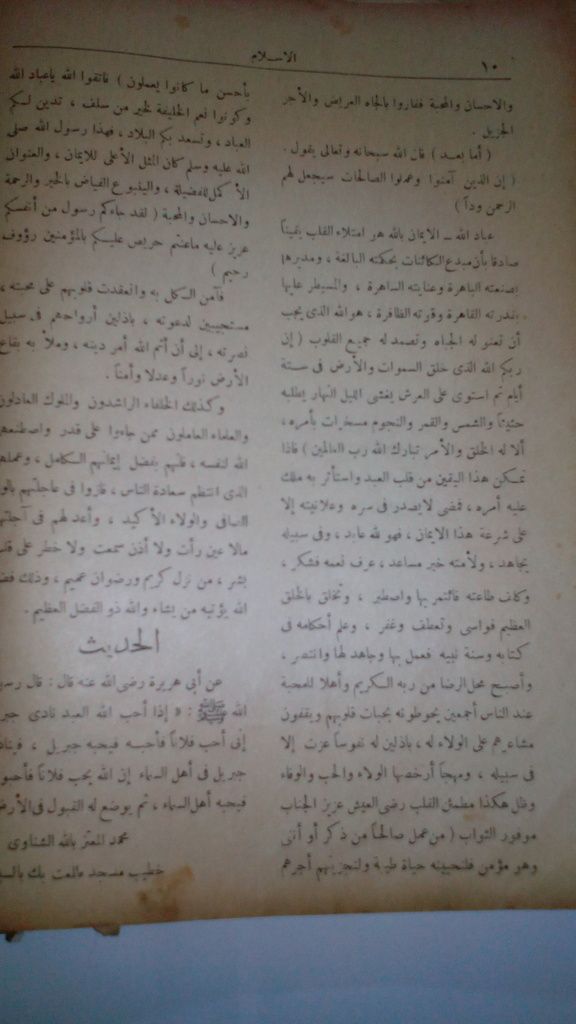 ١٠
الاسلام
والاحسان والمحبة ففازوا بالجاه العريض والأجر
الجزيل .
( أما بعد ) قال الله سبحانه وتعالى يقول .
( إن الذين آمنوا وعملوا الصالحات سيجعل لهم
الرحمن وداً )
عباد الله ــ الايمان بالله هو امتلاء القلب يقيناً
صادقا بأن مبدع الكائنات بحكمته البالغة ، ومدبرها
بصنعته الباهرة وعنايته الساهرة ، والمسيطر عليها
بقدرته القاهرة وقوته الظافرة ، هو الله الذى يجب
أن تعنو له الجباه وتصمد له جميع القلوب ( إن
ربكم الله الذى خلق السموات والأرض فى ستة
أيام ثم استوى على العرش يغشى الليل النهار يطلبه
حثيثاً والشمس والقمر والنجوم مسخرات بأمره ،
ألا له الخلق والأمر تبارك الله رب العالمين ) فاذا
تمكن هذا اليقين من قلب العبد واستأثر به ملك
عليه أمره ، فمضى لا يصدر فى سره وعلانيته إلا
على شرعة هذا الايمان ، فهو لله عابد ، وفى سبيله
يجاهد ، ولأمته خير مساعد ، عرف نعمه فشكر ،
وكلف طاعته فائتمر بها واصطبر ، وتخلق بالخلق
العظيم فواسى وتعطف وغفر ، وعلم أحكامه فى
كتابه وسنة نبيه فعمل بها وجاهد لها وانتصر ،
وأصبح محل الرضا من ربه الكريم وأهلا للمحبة
عند الناس أجمعين يحوطونه بحبات قلوبهم ويقفون
مشاعرهم على الولاء له ، باذلين له نفوساً عزت إلا
فى سبيله ، ومهجاً أرخصها الولاء والحب والوفاء
وظل هكذا مطمئن القلب رضى العيش عزيز الجناب
موفور الثواب ( من عمل صالحاً من ذكر أو أنثى
وهو مؤمن فلنحيينه حياة طيبة ولنجزينهم أجرهم
بأحسن ما كانوا يعملون ) فاتقوا الله ياعباد الله
وكونوا نعم الخليفة لخير من سلف ، تدين لكم
العباد ، وتسعد بكم البلاد ، فهذا رسول الله صلى
الله عليه وسلم كان المثل الأعلى للايمان ، والعنوان
الأكمل للفضيلة ، والينبوع الفياض بالخير والرحمة
والاحسان والمحبة ( لقد جاءكم رسول من أنفسكم
عزيز عليه ماعنتم حريص عليكم بالمؤمنين رؤوف
رحيم )
فآمن الكل به وانعقدت قلوبهم على محبته ،
مستجيبين لدعوته ، باذلين أرواحهم فى سبيل
نصرته ، إلى أن أتم الله أمر دينه ، وملأ به بقاع
الأرض نوراً وعدلا وأمناً .
وكذلك الخلفاء الراشدون والملوك العادلون
والعلماء العاملون ممن جاءوا على قدر واصطنعهم
الله لنفسه ، فانهم بفضل إيمانهم الكامل ، وعملهم
الذى انتظم سعادة الناس ، فازوا فى عاجلتهم
الصافى والولاء الأكيد ، وأعد لهم فى
مالا عين رأت ولا أذن سمعت ولا خطر على
بشر ، من نزل كريم ورضوان عميم ، وذلك
الله يؤتيه من يشاء والله ذو الفضل العظيم .
الحديث
عن أبى هريرة رضى الله عنه قال : قال
الله ﷺ : « إذا أحب الله العبد نادى
إنى أحب فلاناً فأحبه فيحبه جبريل ،
جبريل فى أهل السماء إن الله يحب فلاناً
فيحبه أهل السماء ، ثم يوضع له القبول فى
محمد المعتز بالله الشناوى
خطيب مسجد طلعت بك